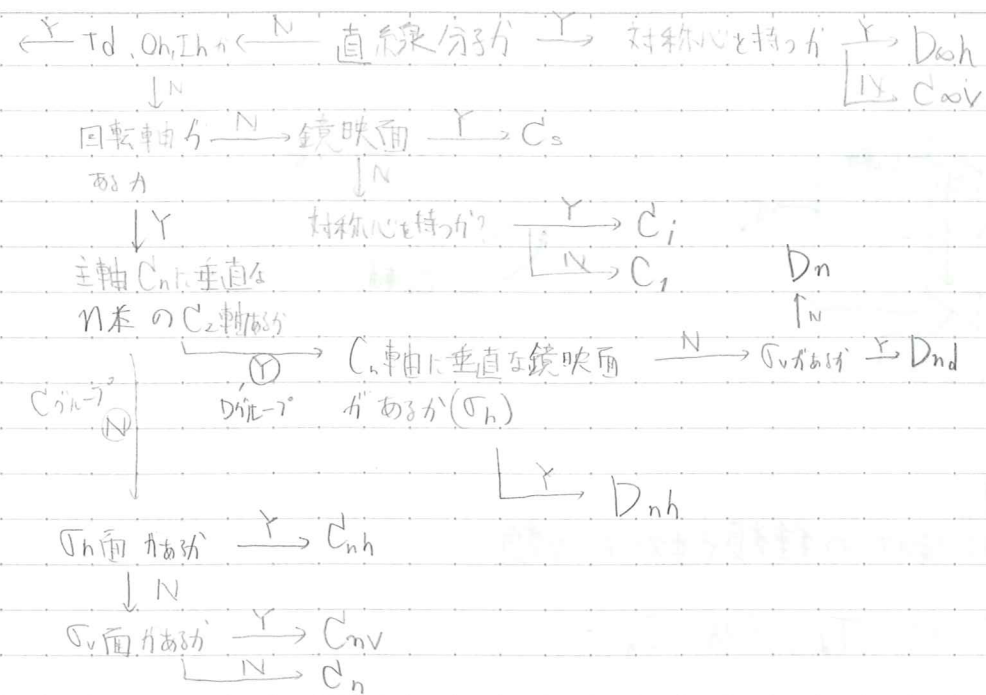 Y Td、Oh、Ihか N 直線分子か Y 対称心を持つか Y D∞h
N C∞v
N
回転軸が N 鏡映面 Y Cs
あるか
N
Y 対称心を持つか? Y Ci
N C1
主軸Cnに垂直な
n本のC2軸あるか
Dn
N
Y Cn軸に垂直な鏡映面 N σvがあるか Y Dnd
Cグループ Dグループ があるか(σh)
N
Y Dnh
σh面があるか Y Cnh
N
σv面があるか Y Cnv
N Cn